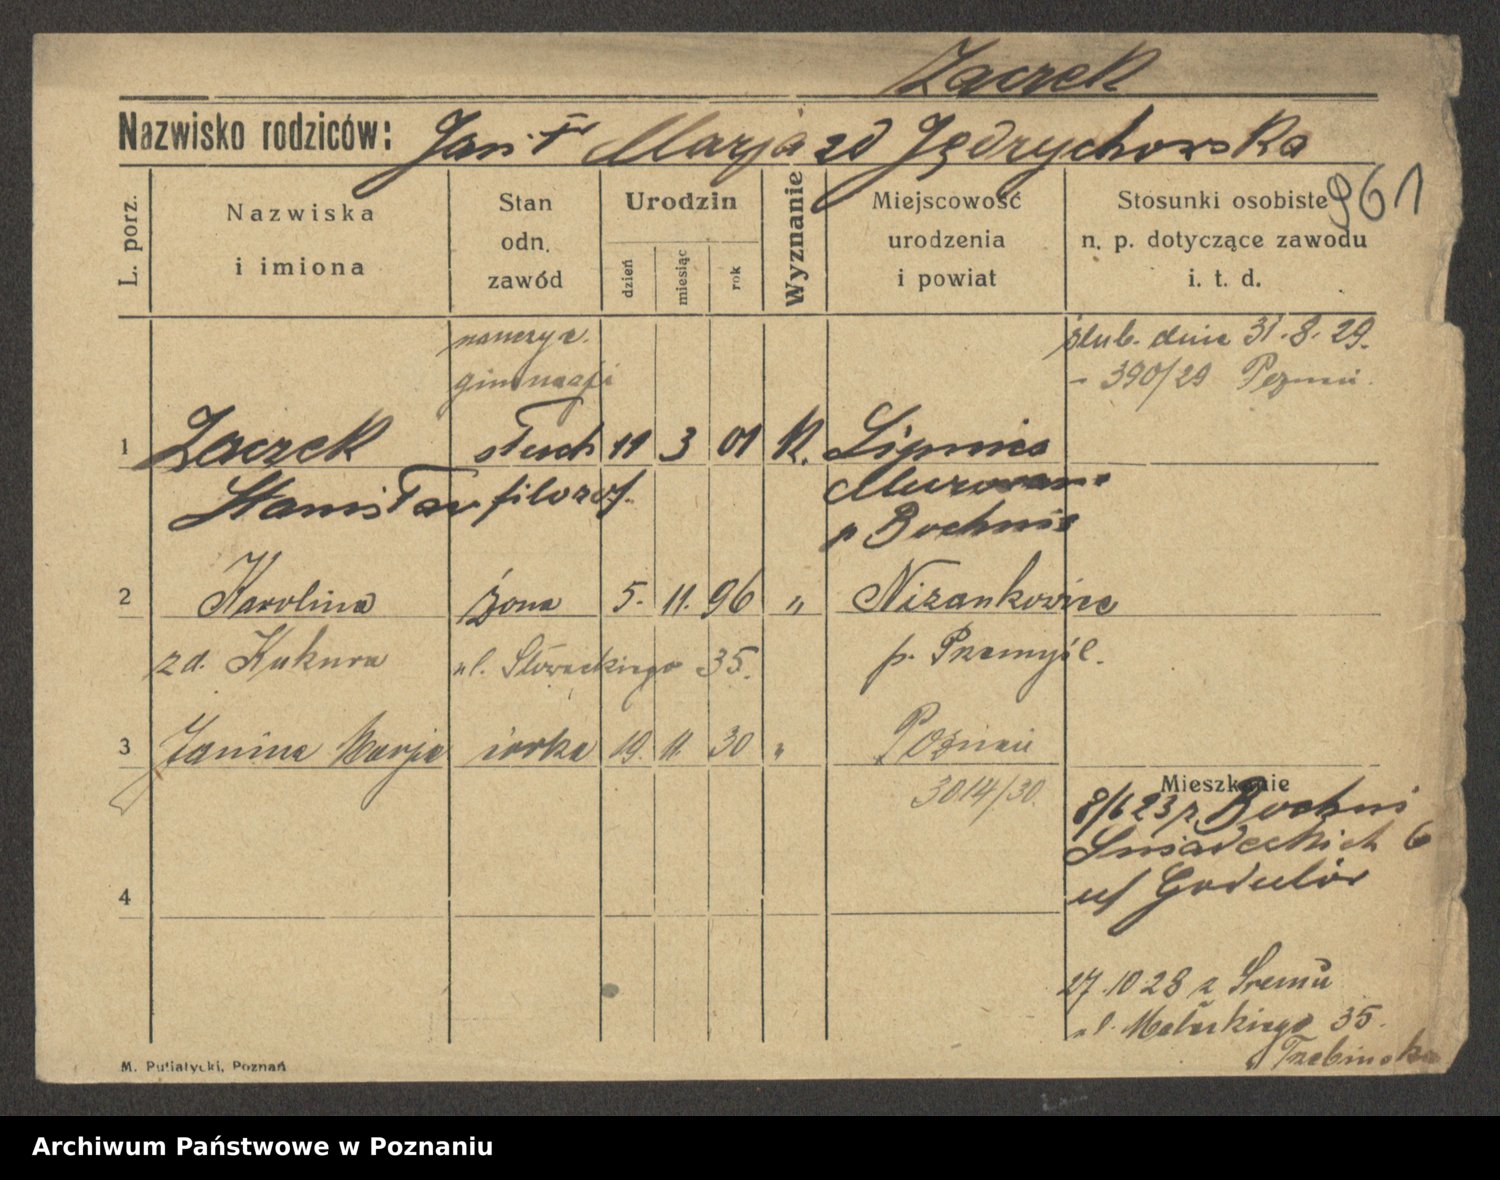 Zaczek
Nazwisko rodziców: Jan i Marja zd Jędrychowska
961
L. porz.
Nazwiska i imiona
Stan odn. zawód
Urodzin
dzień
miesiąc
rok
Wyznanie
Miejscowość urodzenia i powiat
Stosunki osobiste n. p. dotyczące zawodu i. t. d.
nauczyc.
gimnazji
ślub. dnia 31.8.29.
- 390/29 Poznań.
1 Zaczek słuch 11 3 01 K. Lipnica
Stanisław filozof. Murowana
p Bochnia
2 Karolina żona 5. 11. 96 " Niżankowice
zd. Kukura ul. Słowackiego 35. p. Przemyśl.
3 Janina Marja córka 19. 11. 30 " Poznań
3014/30.
Mieszkanie
8/6 23 z Bochni
Śniadeckich 6
u/ Godulów
4
27.10 28 z Śremu
ul. Małeckiego 35.
u Trzebińska
M. Putiatycki, Poznań
Archiwum Państwowe w Poznaniu